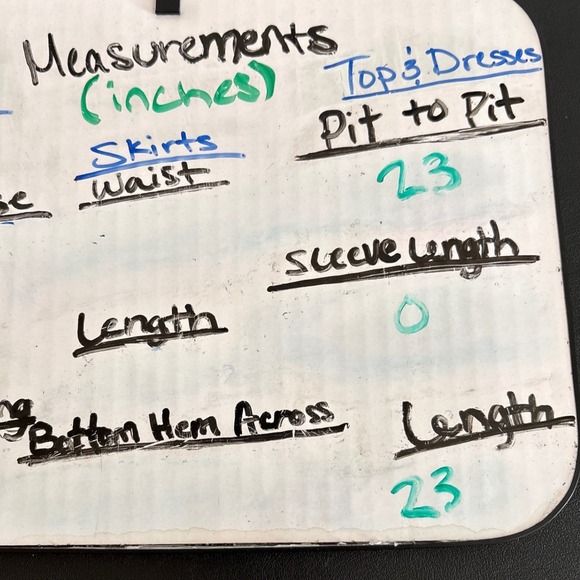 Measurements
(inches)
Top & Dresses
Pit to Pit
23
Skirts
Waist
Sleeve Length
0
Length
Bottom Hem Across
Length
23